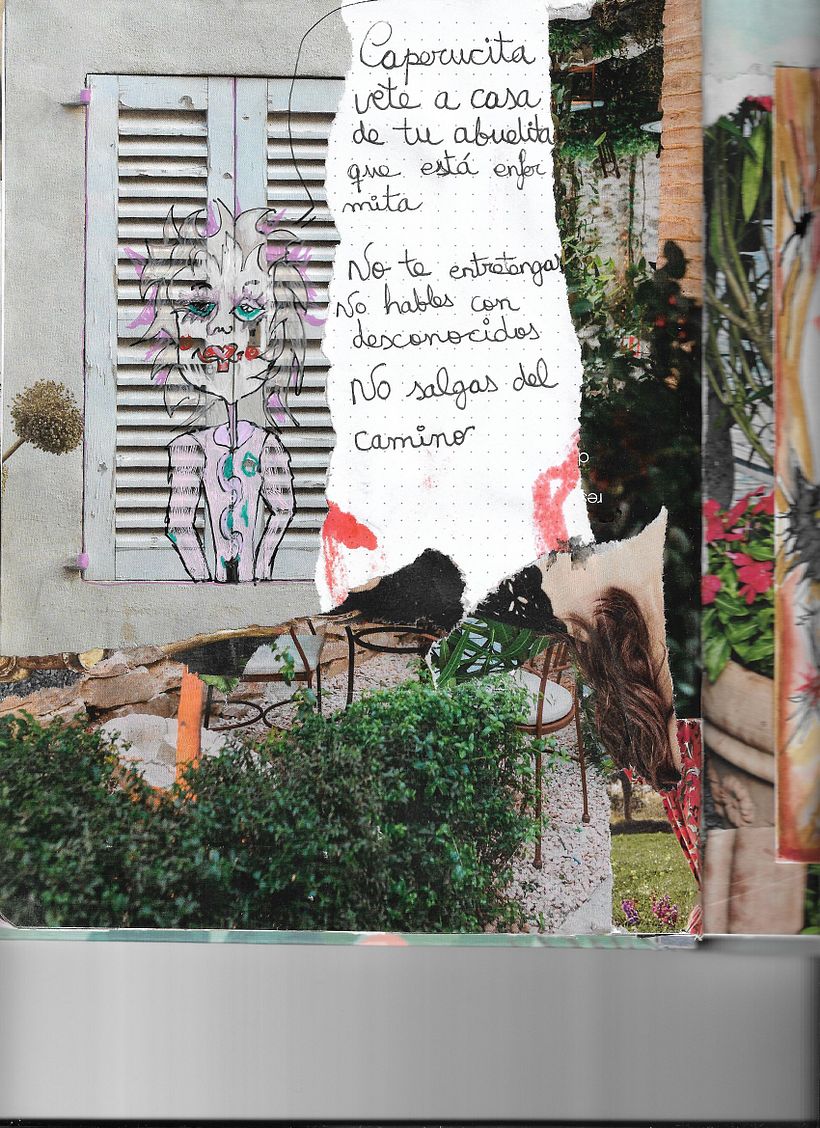 Caperucita
vete a casa
de tu abuelita
que está enfer
mita
No te entretengas
No hables con
desconocidos
No salgas del
camino